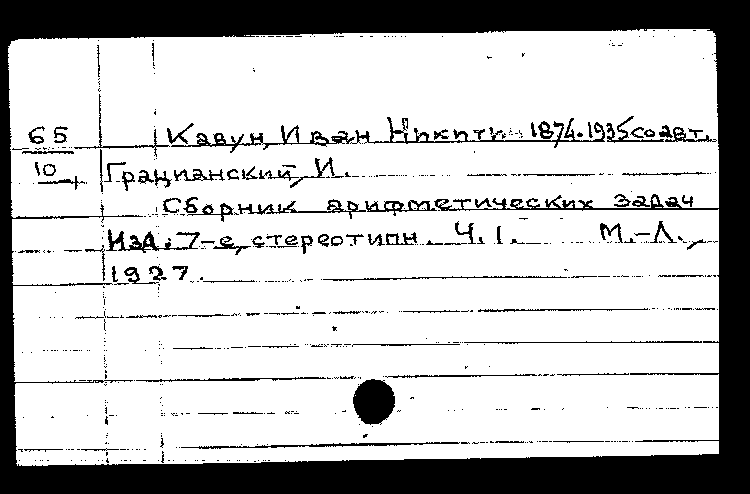 65 Кавун, Иван Никити 1874-1935 соавт.
10 Грацианский, И.
Сборник арифметических задач
Изд. 7-е, стереотипн. Ч. I. М.-Л.,
1927.